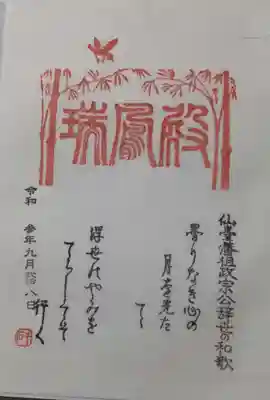 瑞鳳殿
仙臺藩祖政宗公辞世の和歌
曇りなき心の
月を先た
てゝ
浮世のやみを
てらしてそ
行く
令和
参年九月拾八日